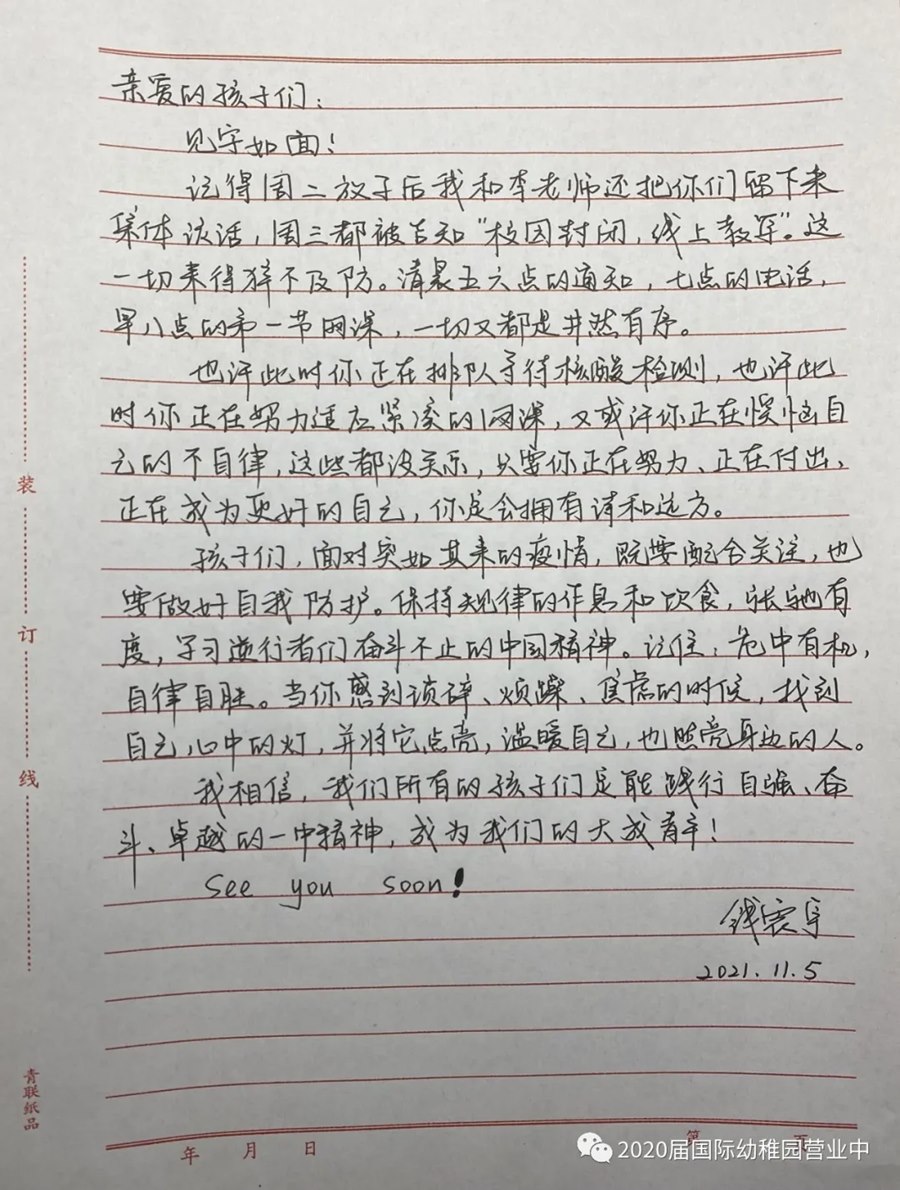 亲爱的孩子们：
见字如面！
记得周二放学后我和李老师还把你们留下来
集体谈话，周三都被告知“校园封闭，线上教学”。这
一切来得猝不及防。清晨五六点的通知，七点的电话，
早八点的第一节网课，一切又都是井然有序。
也许此时你正在排队等待核酸检测，也许此
时你正在努力适应紧凑的网课，又或许你正在懊恼自
己的不自律，这些都没关系，只要你正在努力、正在付出、
正在成为更好的自己，你定会拥有诗和远方。
孩子们，面对突如其来的疫情，既要配合关注，也
要做好自我防护。保持规律的作息和饮食，张弛有
度，学习逆行者们奋斗不止的中国精神。记住：危中有机，
自律自胜。当你感到琐碎、烦躁、焦虑的时候，找到
自己心中的灯，并将它点亮，温暖自己，也照亮身边的人。
我相信，我们所有的孩子们定能践行自强、奋
斗、卓越的一中精神，成为我们的大成青年！
See you soon！
钱
2021.11.5
装
订
线
青联纸品
年 月 日
第 页
2020届国际幼稚园营业中